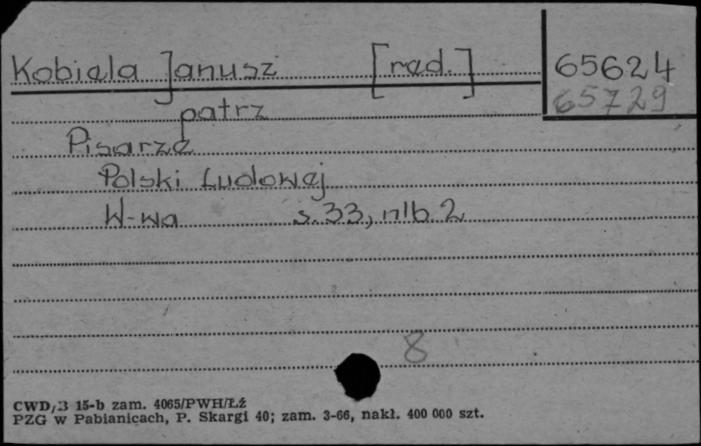 Kobiela Janusz [red.] 65624
65729
patrz
Pisarze
Polski Ludowej
W-wa s. 33, nlb 2
8
CWD/3 15-b zam. 4065/PWH/Łź
PZG w Pabianicach, P. Skargi 40; zam. 3-66, nakł. 400 000 szt.